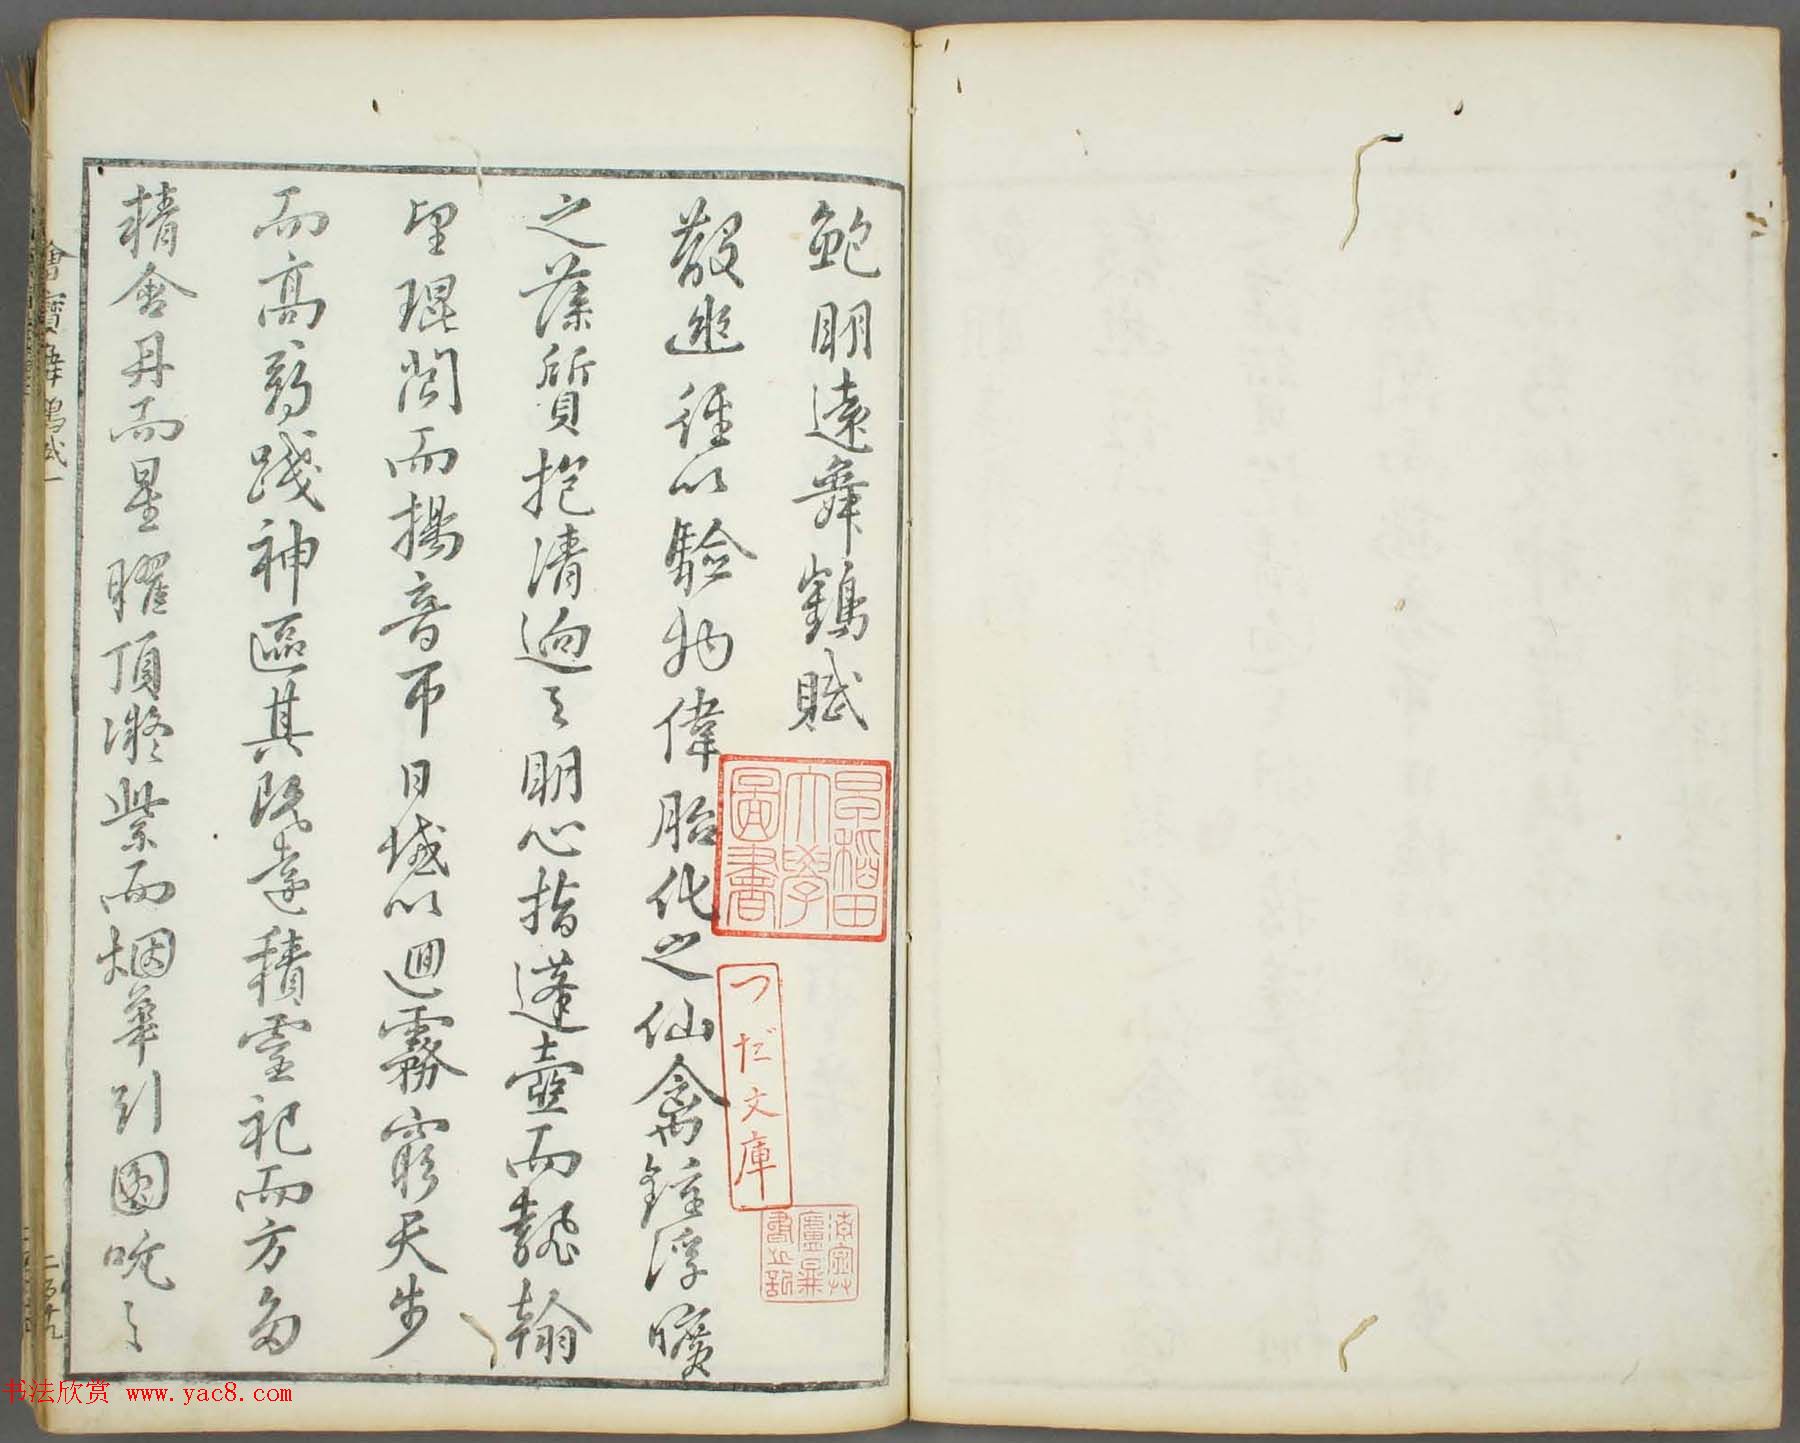 鮑明遠舞鶴賦
散幽經以驗物偉胎化之仙禽鍾浮曠
之藻質抱清迥之明心指蓬壺而翻翰
望琨閬而揚音帀日域以迴霧窮天步
而高尋踐神區其既遠積靈祀而方多
精含丹而星曜頂凝紫而烟華引圓吭之
早稻田
大學
圖書
つだ文庫
书法欣赏 www.yac8.com